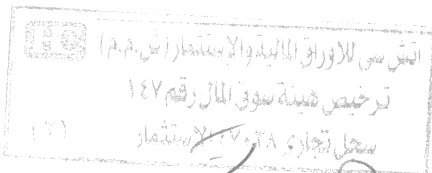 اتش سى للاوراق المالية والاستثمار (ش.م.م)
ترخيص هيئة سوق المال رقم ١٤٧
سجل تجارى الاستثمار
(٢)